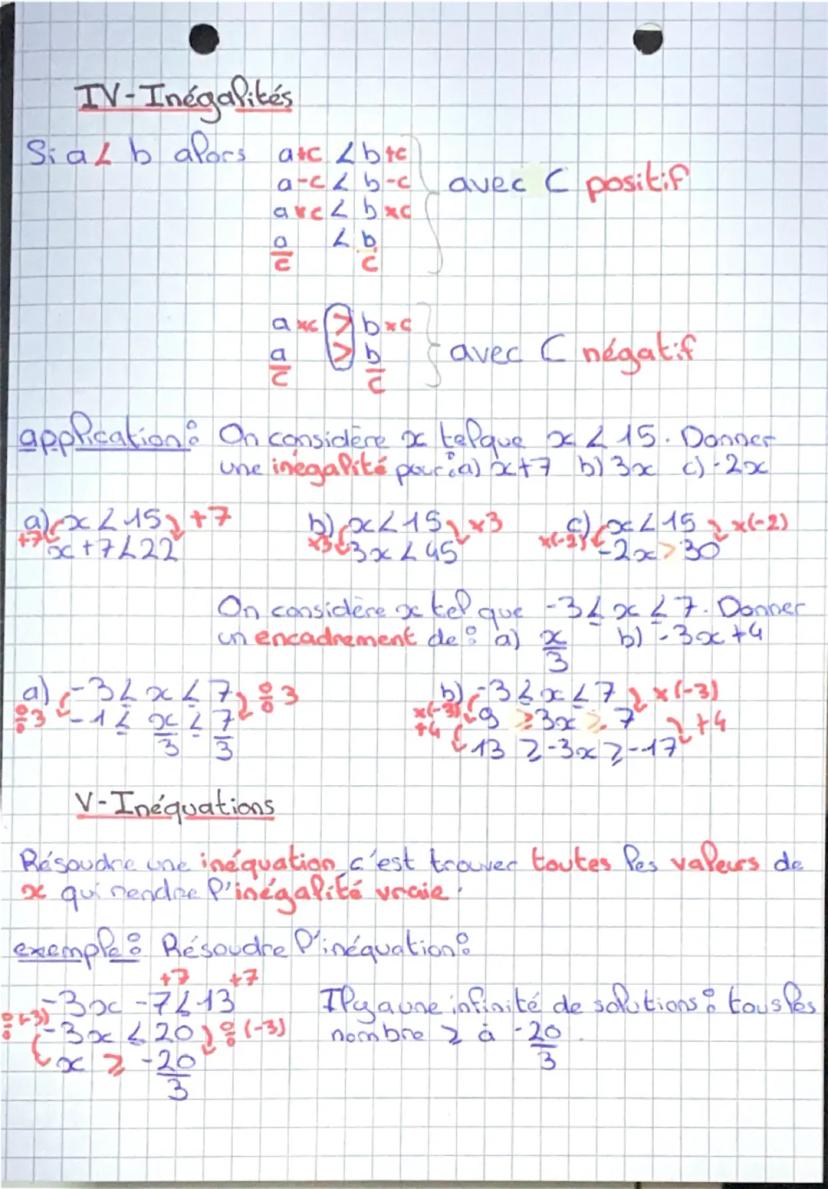 IV - Inégalités
Si a < b alors a+c < b+c
a-c < b-c
a×c < b×c
a/c < b/c
avec C positif
a×c > b×c
a/c > b/c
avec C négatif
application : On considère x tel que x < 15. Donner
une inégalité pour : a) x+7 b) 3x c) -2x
a) x < 15 +7
+7 x+7 < 22
b) x < 15 ×3
×3 3x < 45
c) x < 15 ×(-2)
×(-2) -2x > 30
On considère x tel que -3 ≤ x ≤ 7. Donner
un encadrement de : a) x/3 b) -3x+4
a) -3 ≤ x ≤ 7 ÷3
÷3 -1 ≤ x/3 ≤ 7/3
b) -3 ≤ x ≤ 7 ×(-3)
×(-3) 9 ≥ 3x ≥ 7 +4
+4 13 ≥ -3x ≥ -17
V - Inéquations
Résoudre une inéquation, c'est trouver toutes les valeurs de
x qui rendre l'inégalité vraie.
exemple : Résoudre l'inéquation :
+7 +7
-3x - 7 < 13
÷(-3) -3x < 20 ÷(-3)
x ≥ -20/3
Il y a une infinité de solutions : tous les
nombre ≥ à -20/3.